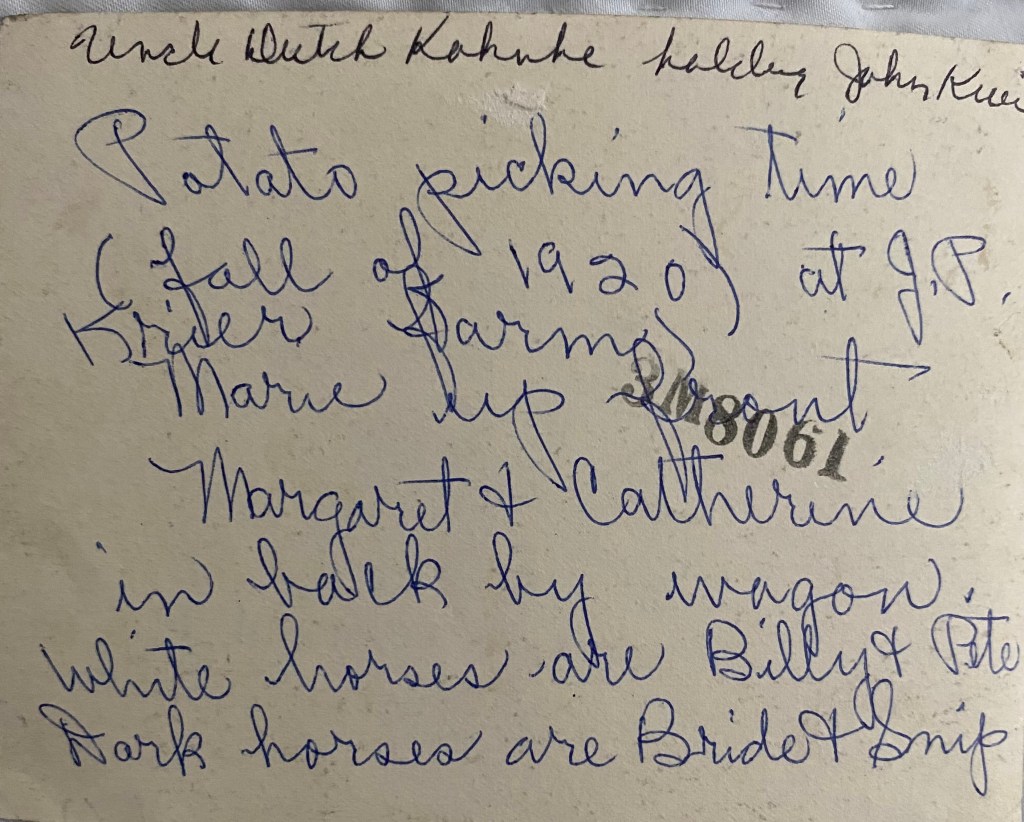 Uncle Dutch Kahnke holding John
Potato picking time
(fall of 1920) at J.P.
Krier Farm)
Marie up front
3M8061
Margaret & Catherine
in back by wagon.
White horses are Billy & Pete
Dark horses are Bride & Snip